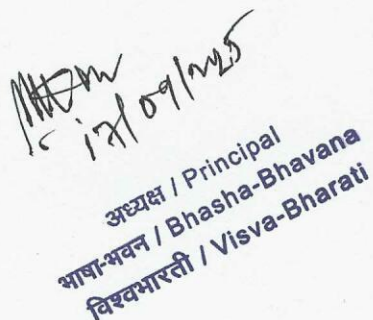 17/09/2025
अध्यक्ष / Principal
भाषा-भवन / Bhasha-Bhavana
विश्वभारती / Visva-Bharati